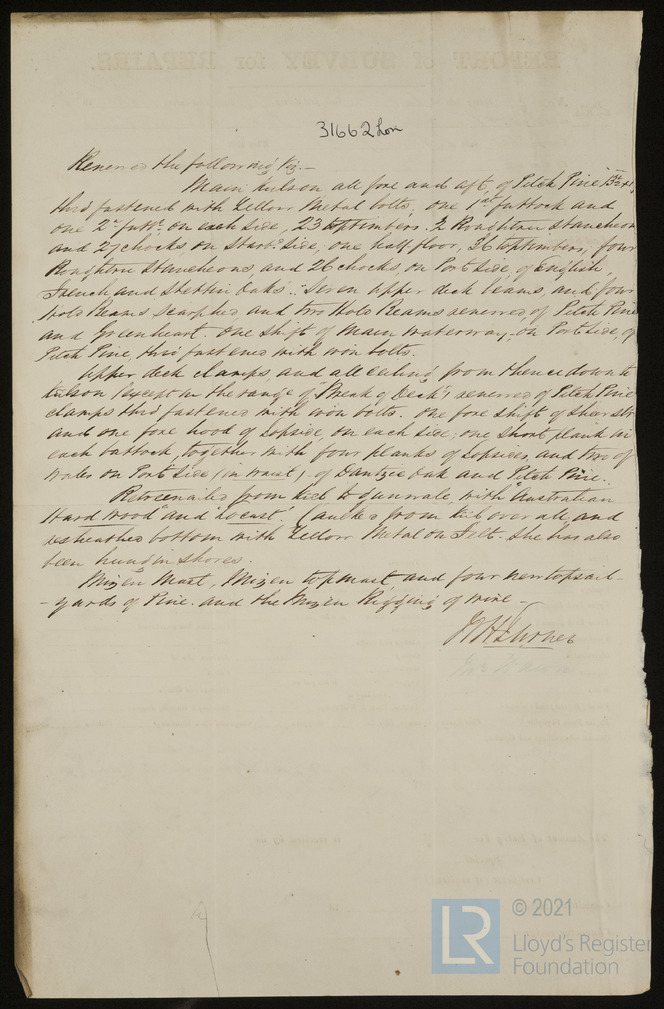 REPORT of SURVEY for REPAIRS.
31662 Lon
Renewed the following Viz.—
Main Kelson all fore and aft, of Pitch Pine
thro' fastened with Yellow Metal bolts; one 1st futtock and
one 2nd futtk on each side, 23 toptimbers. 2 Roughtree Stancheons
and 27 chocks on Starbd Side, one half floor, 36 toptimbers, four
Roughtree Stancheons, and 26 chocks, on Port Side of English,
French and Stettin Oaks. Seven upper deck beams, and four
Hold Beams scarphed and two Hold Beams renewed, of Pitch Pine
and Greenheart. One Shift of Main Waterway, on Port Side of
Pitch Pine, thro' fastened with iron bolts.
Upper deck clamps, and all ceiling from thence down to
Kelson (except in the range of "Break of Deck") renewed of Pitch Pine
clamps thro' fastened with iron bolts. One fore shift of Sheerstk
and one fore hood of topside, on each side; one short plank in
each buttock, together with four planks of topsides, and two of
Wales on Port Side (in waist) of Dantzic Oak and Pitch Pine.
Retreenailed from Keel to gunwale, with "Australian
Hard wood" and "Locust". Caulked from Keel over all, and
resheathed bottom with Yellow Metal on Felt. She has also
been hung in shores.
Mizen Mast, Mizen topmast and four new topsail-
-yards of Pine. and the Mizen Rigging of wire -
© 2021
LR
Lloyd's Register
Foundation